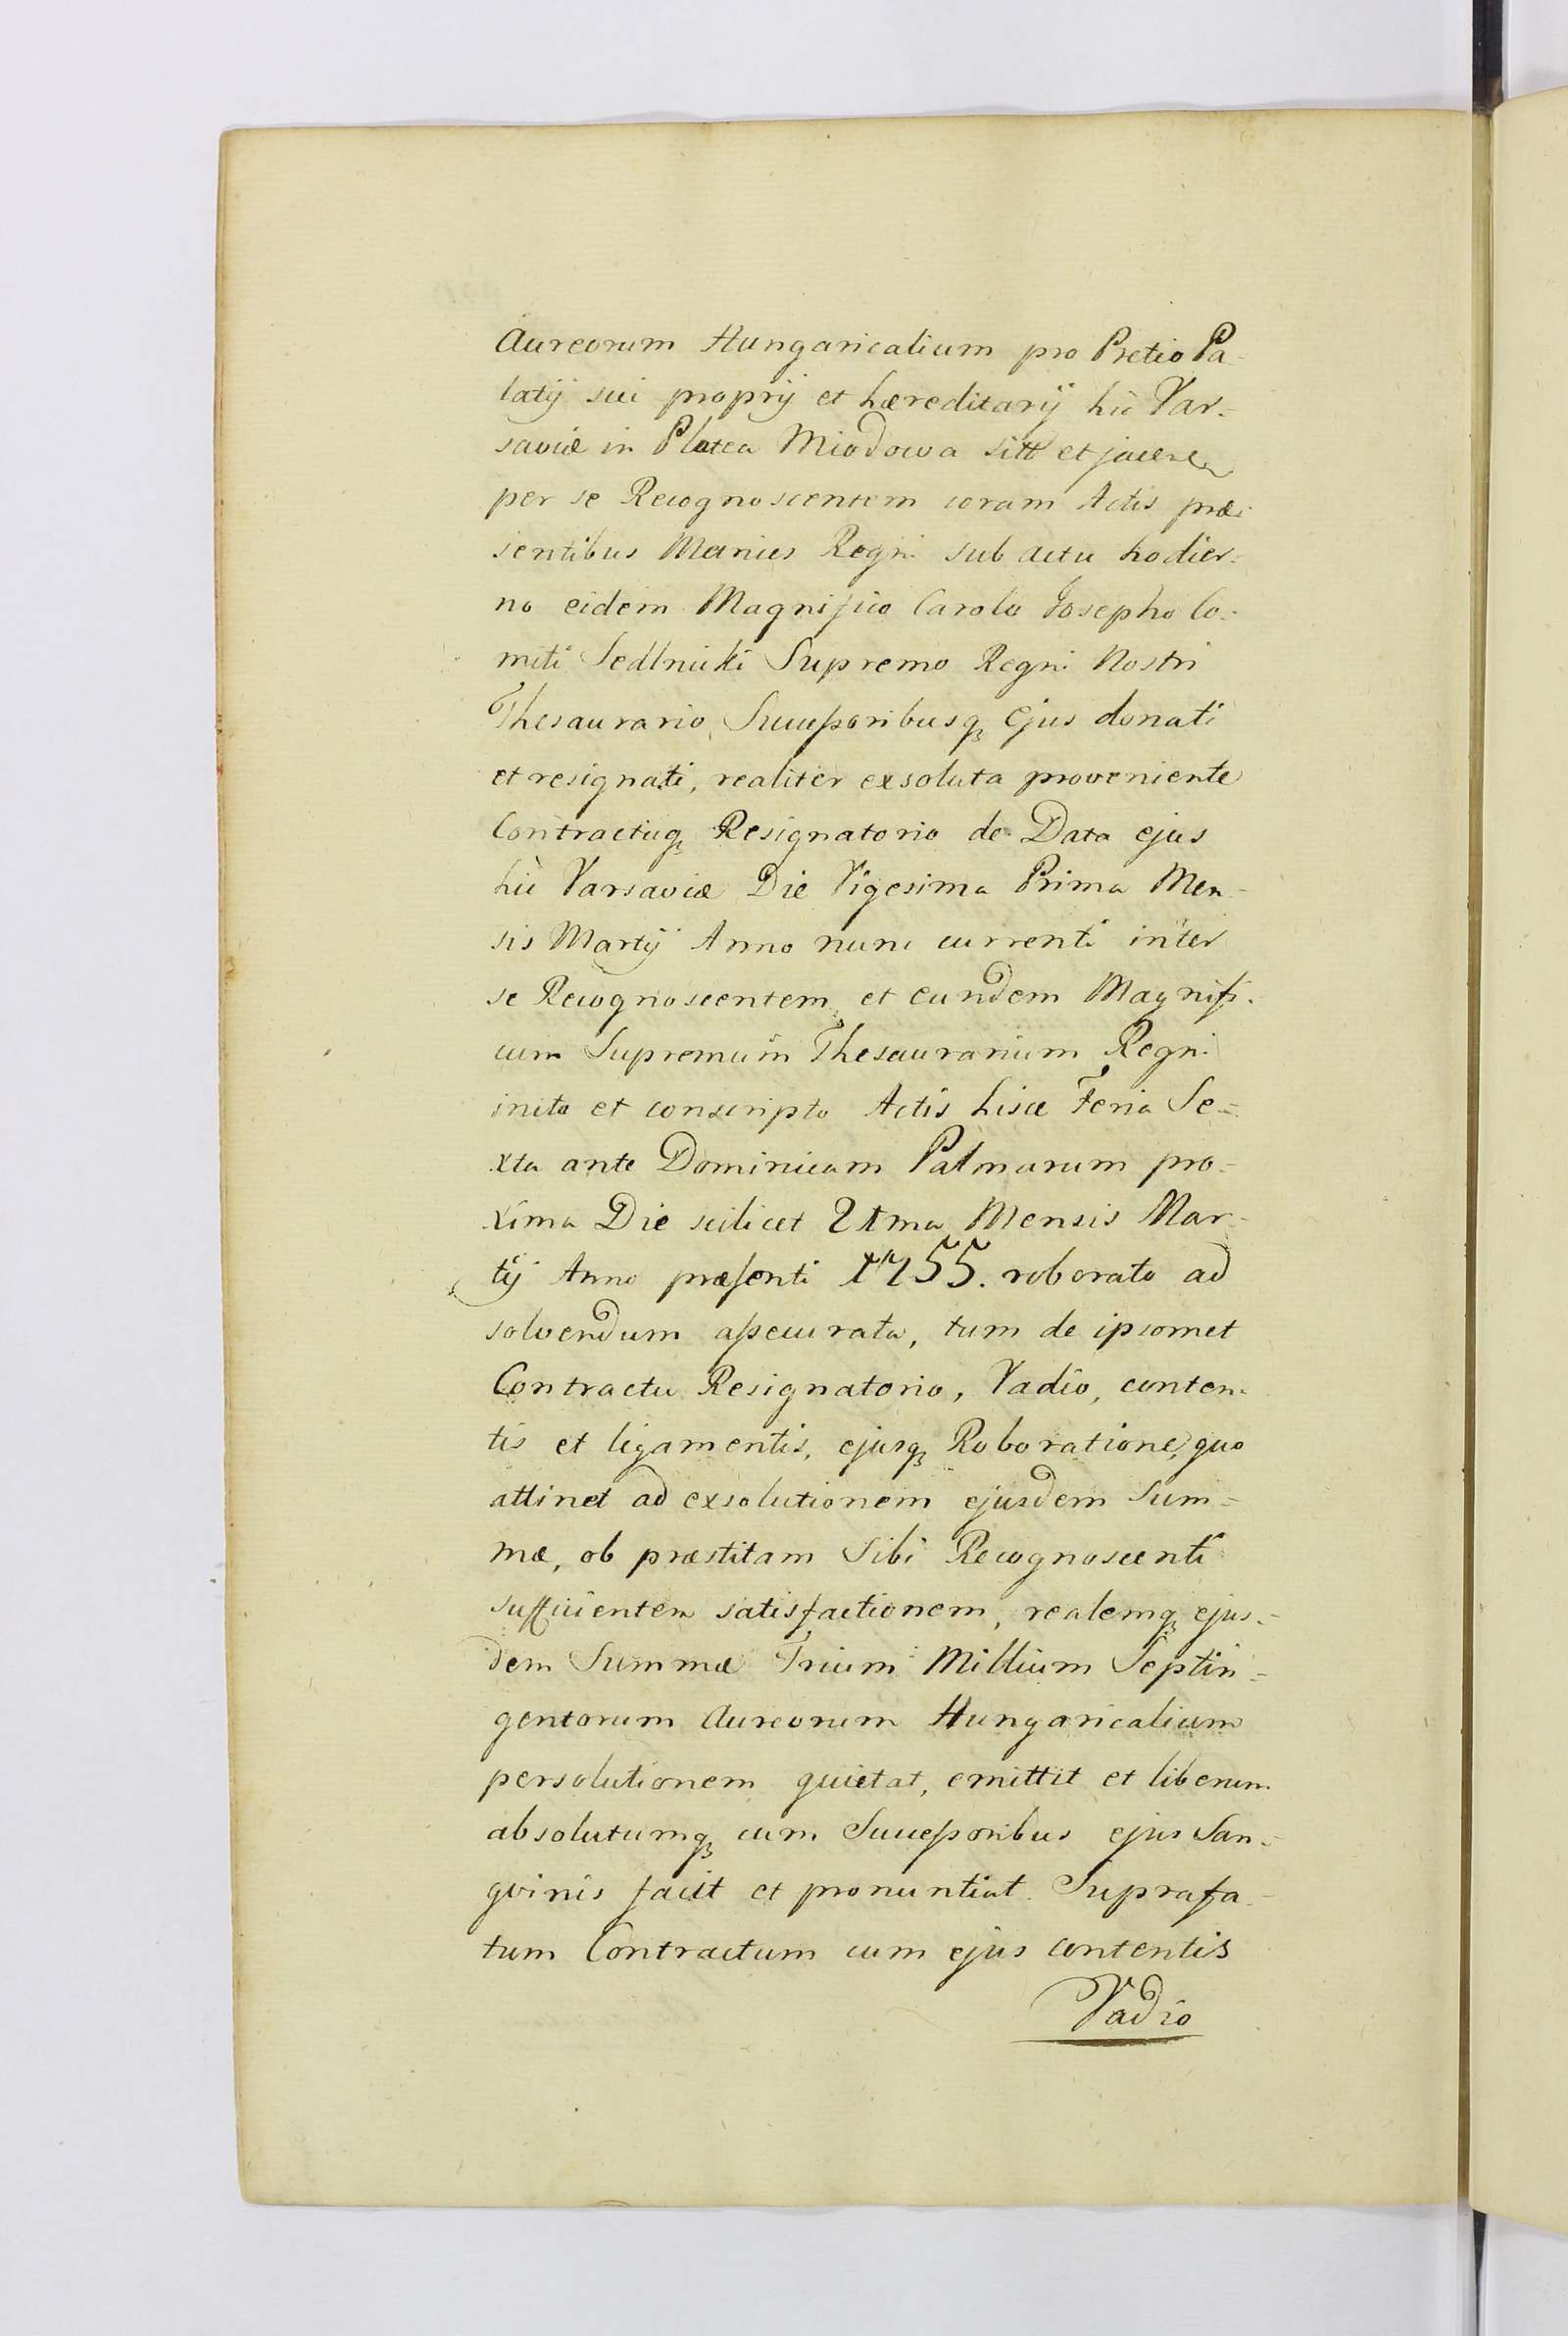 Aureorum Hungaricalium pro Pretio Pa-
latij sui proprij et hæreditarij hic Var-
saviæ in Platea Miodowa sitt et jacen
per se Recognoscentem coram Actis præ-
sentibus Metrices Regni sub actu hodier-
no eidem Magnifico Carolo Josepho Co-
miti Sedlnicki Supremo Regni Nostri
Thesaurario, Successoribusq Ejus donati
et resignati, realiter exsoluta proveniente
Contractuq Resignatorio de Data ejus
hic Varsaviæ Die Vigesima Prima Men-
sis Martij Anno nunc currenti inter
se Recognoscentem, et eundem Magnifi-
cum Supremum Thesaurarium Regni
inito et conscripto Actis hisce Feria Se-
xta ante Dominicam Palmarum pro-
xima Die scilicet 21ma Mensis Mar-
tij Anno præsenti 1755. roborato ad
solvendum assecurata, tum de ipsomet
Contractu Resignatorio, Vadio, conten-
tis et ligamentis, ejusq Roboratione, quo
attinet ad exsolutionem ejusdem Sum-
mæ, ob præstitam Sibi Recognoscenti
sufficientem satisfactionem, realemq ejus-
dem Summæ Trium Millium Septin-
gentorum Aureorum Hungaricalium
persolutionem quietat, emittit et liberum
absolutumq cum Successoribus ejus San-
gvinis facit et pronuntiat. Suprafa-
tum Contractum cum ejus contentis
Vadio